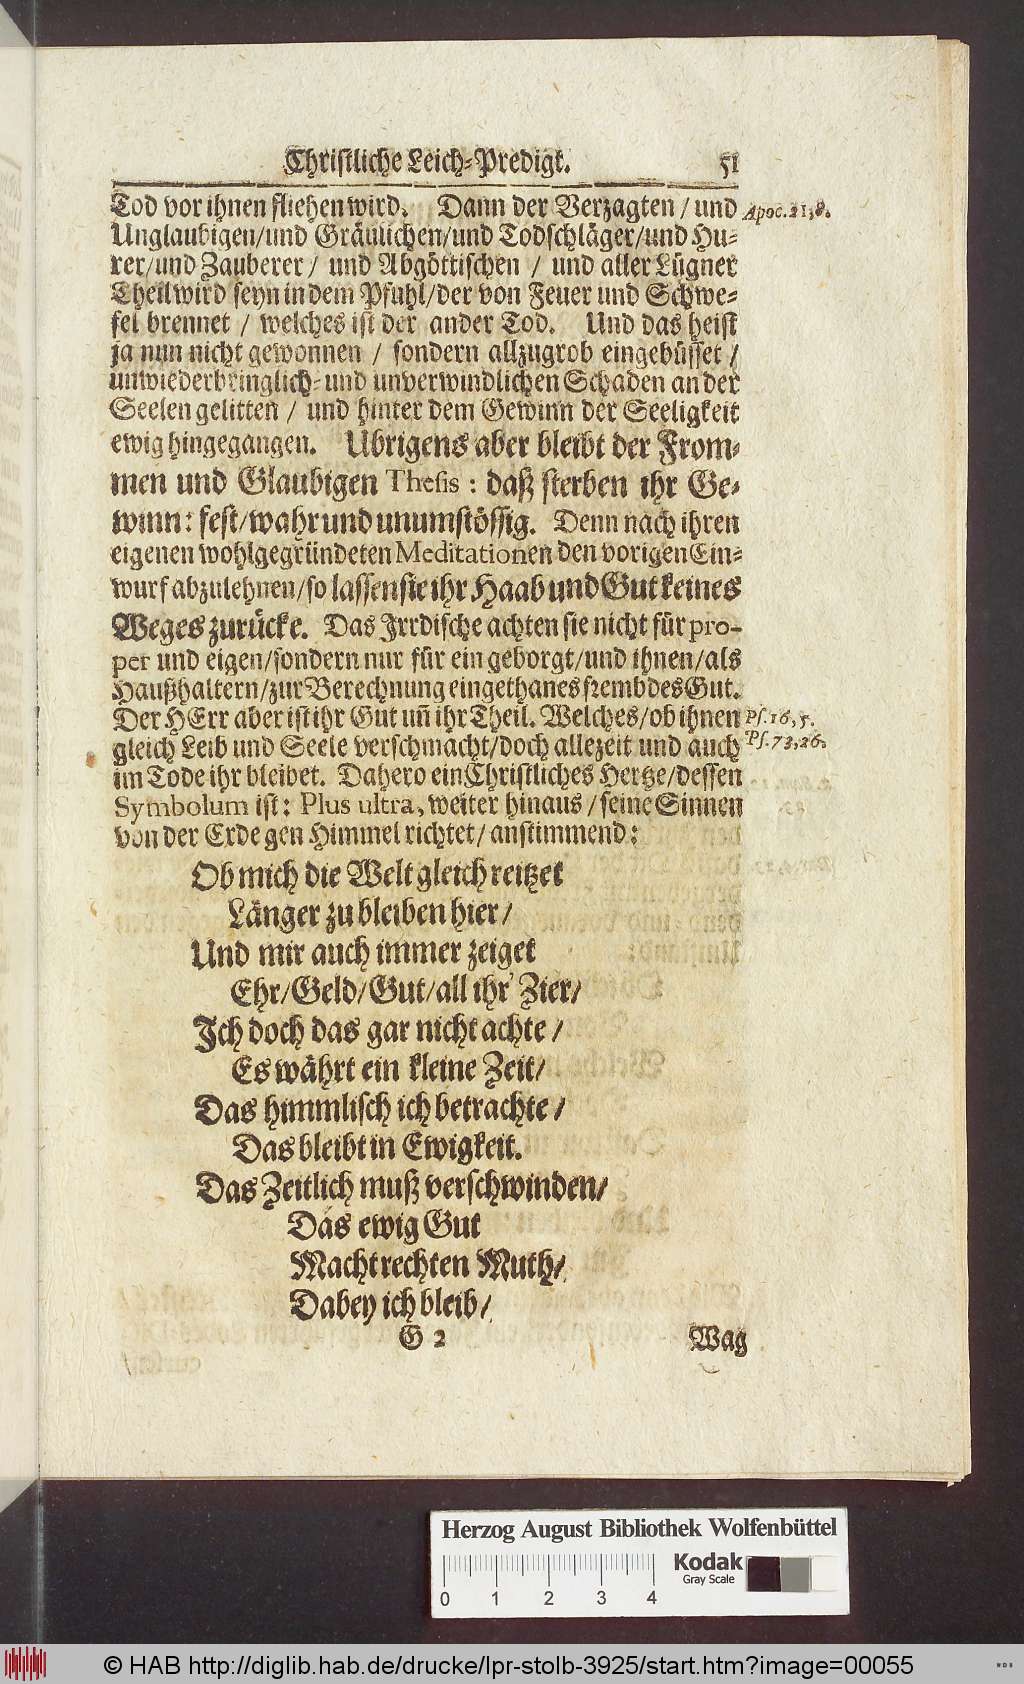 Christliche Leich-Predigt. 51
Tod vor ihnen fliehen wird. Dann der Verzagten / und Apoc. 21, 8.
Unglaubigen/und Gräulichen/und Todschläger/und Hu-
rer/und Zauberer / und Abgöttischen / und aller Lügner
Theil wird seyn in dem Pfuhl/der von Feuer und Schwe-
fel brennet / welches ist der ander Tod. Und das heist
ja nun nicht gewonnen / sondern allzugrob eingebüsset /
unwiederbringlich- und unverwindlichen Schaden an der
Seelen gelitten / und hinter dem Gewinn der Seeligkeit
ewig hingegangen. Ubrigens aber bleibt der From-
men und Glaubigen Thesis : daß sterben ihr Ge-
winn: fest/wahr und unumstössig. Denn nach ihren
eigenen wohlgegründeten Meditationen den vorigen Ein-
wurf abzulehnen/so lassen sie ihr Haab und Gut keines
Weges zurücke. Das Irrdische achten sie nicht für pro-
per und eigen/sondern nur für ein geborgt/und ihnen/als
Haußhaltern/zur Berechnung eingethanes frembdes Gut.
Der HErr aber ist ihr Gut uñ ihr Theil. Welches/ob ihnen Ps. 16, 5.
gleich Leib und Seele verschmacht/doch allezeit und auch Ps. 73, 26.
im Tode ihr bleibet. Dahero ein Christliches Hertze/dessen
Symbolum ist: Plus ultra, weiter hinaus / seine Sinnen
von der Erde gen Himmel richtet/ anstimmend:
Ob mich die Welt gleich reitzet
Länger zu bleiben hier /
Und mir auch immer zeiget
Ehr/Geld/Gut/all ihr Zier/
Ich doch das gar nicht achte /
Es währt ein kleine Zeit/
Das himmlisch ich betrachte /
Das bleibt in Ewigkeit.
Das Zeitlich muß verschwinden/
Das ewig Gut
Macht rechten Muth/
Dabey ich bleib/
G 2 Wag
Herzog August Bibliothek Wolfenbüttel
Kodak
Gray Scale
0 1 2 3 4
© HAB http://diglib.hab.de/drucke/lpr-stolb-3925/start.htm?image=00055